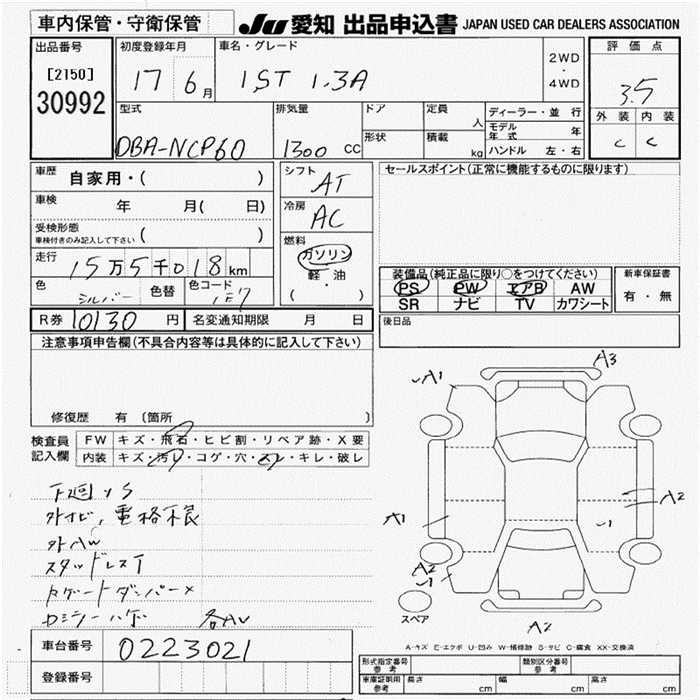 車内保管・守衛保管
JU 愛知 出品申込書 JAPAN USED CAR DEALERS ASSOCIATION
出品番号
[2150]
30992
初度登録年月
17 6月
車名・グレード
IST 1.3A
2WD
・
4WD
評価点
3.5
外装 内装
C C
型式
DBA-NCP60
排気量
1300 CC
ドア
形状
定員 人
積載 kg
ディーラー・並行
モデル年式 年
ハンドル 左・右
車歴
自家用・( )
車検 年 月( 日)
受検形態
車検付きのみ記入して下さい ( )
走行 15万5千018km
色 シルバー 色替 色コード 1E7
シフト AT
冷房 AC
燃料
ガソリン
軽・油
( )
セールスポイント(正常に機能するものに限ります)
装備品(純正品に限り○をつけてください)
PS PW エアB AW
SR ナビ TV カワシート
新車保証書
有・無
R券 10130 円 名変通知期限 月 日
後日品
注意事項申告欄(不具合内容等は具体的に記入して下さい)
修復歴 有 〔箇所
検査員
記入欄
FW キズ・飛石・ヒビ割・リペア跡・X要
内装 キズ・汚レ・コゲ・穴・スレ・キレ・破レ
下廻りS
外ナビ,電格不良
外AW
スタッドレスT
Rゲートダンパー×
Dミラーハゲ 各AU
A3
A1
A2
A1
A2
A2
スペア
A-キズ E-エクボ U-凹み W-補修跡 S-サビ C-腐食 XX-交換済
車台番号 0223021
登録番号
形式指定番号
参考
類別区分番号
参考
車庫証明用
参考
長さ cm 幅 cm 高さ cm